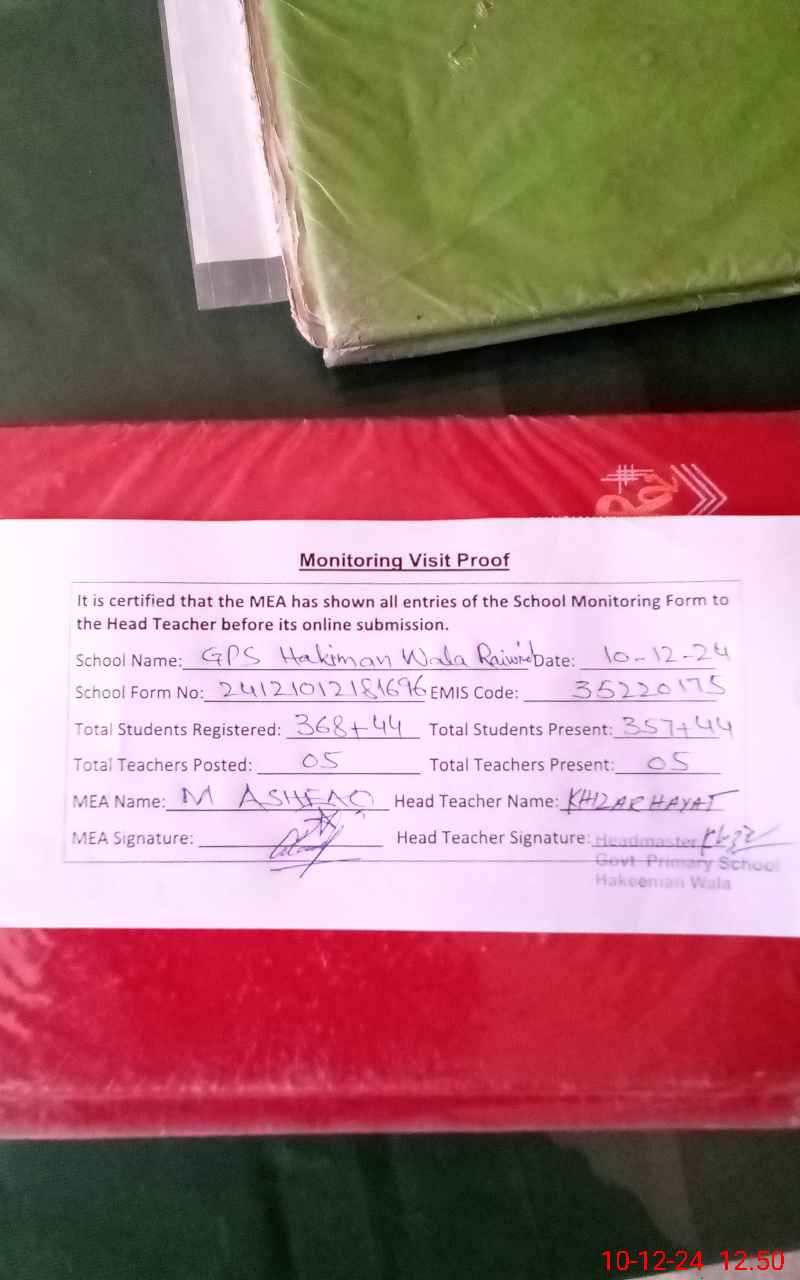 Monitoring Visit Proof
It is certified that the MEA has shown all entries of the School Monitoring Form to
the Head Teacher before its online submission.
School Name: GPS Hakiman Wala Date: 10-12-24
School Form No: 24121012181696 EMIS Code: 35220175
Total Students Registered: 368+44 Total Students Present: 357+44
Total Teachers Posted: 05 Total Teachers Present: 05
MEA Name: M ASHFAQ Head Teacher Name: KHIZAR HAYAT
MEA Signature: Head Teacher Signature: Headmaster
Govt. Primary School
Hakeeman Wala
10-12-24 12:50